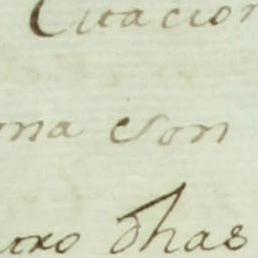 Citacion
ma con
oxo dhas